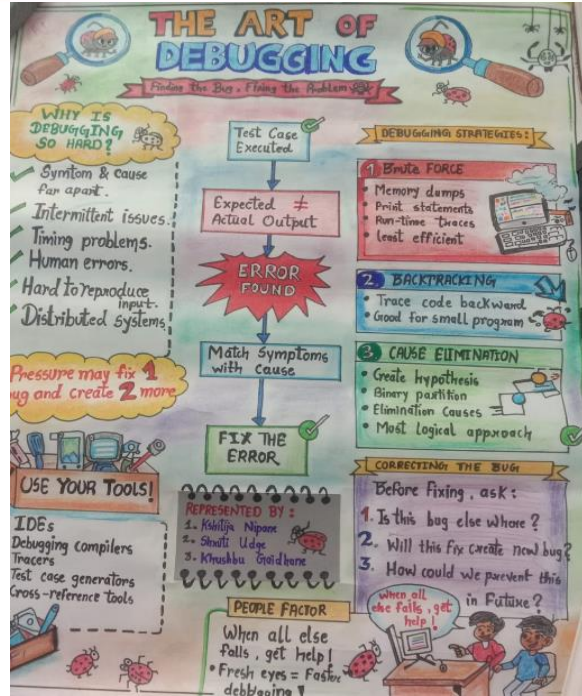 THE ART OF
DEBUGGING
Finding the Bug, Fixing the Problem
WHY IS
DEBUGGING
SO HARD?
Symtom & cause
far apart.
Intermittent issues.
Timing problems.
Human errors.
Hard to reproduce
input.
Distributed Systems
Pressure may fix 1
ug and create 2 more
USE YOUR TOOLS!
IDEs
Debugging compilers
Tracers
Test case generators
Cross-reference tools
Test Case
Executed
Expected ≠
Actual Output
ERROR
FOUND
Match Symptoms
with Cause
FIX THE
ERROR
REPRESENTED BY :
1. Kshitija Nipane
2. Shruti Udge
3. Khushbu Gaidhane
PEOPLE FACTOR
When all else
falls, get help!
• Fresh eyes = Faster
debbuging !
DEBUGGING STRATEGIES:
1 Brute FORCE
• Memory dumps
• Print statements
• Run-time traces
• least efficient
2. BACKTRACKING
• Trace code backward
• Good for small program
3 CAUSE ELIMINATION
• Create hypothesis
• Binary partition
• Elimination Causes
• Most logical approach
CORRECTING THE BUG
Before fixing, ask :
1. Is this bug else where ?
2. Will this fix create new bug?
3. How could we prevent this
in Future ?
when all
else falls, get
help !